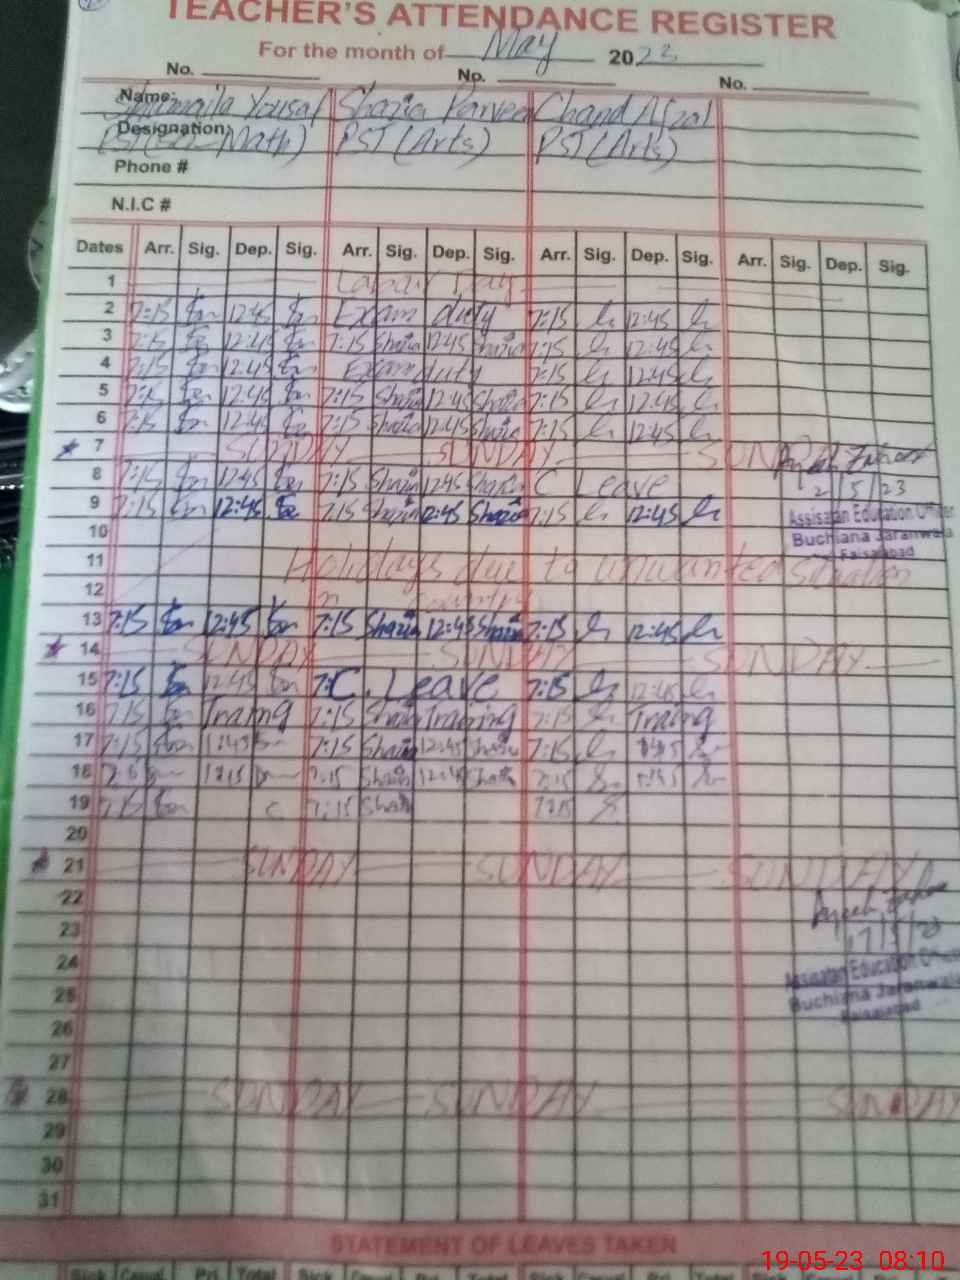 TEACHER'S ATTENDANCE REGISTER
For the month of May 2023
No. No. No.
Name: Shumaila Yousaf Shazia Parveen Chand Afzal
Designation: PST (Sci-Math) PST (Arts) PST (Arts)
Phone #
N.I.C #
Dates Arr. Sig. Dep. Sig. Arr. Sig. Dep. Sig. Arr. Sig. Dep. Sig. Arr. Sig. Dep. Sig.
1 Labour Day
2 7:15 12:45 Exam duty 7:15 12:45
3 7:15 12:45 7:15 Shazia 12:45 Shazia 7:15 12:45
4 7:15 12:45 Exam duty 7:15 12:45
5 7:15 12:45 7:15 Shazia 12:45 Shazia 7:15 12:45
6 7:15 12:45 7:15 Shazia 12:45 Shazia 7:15 12:45
7 SUNDAY SUNDAY SUNDAY
8 7:15 12:45 7:15 Shazia 12:45 Shazia C Leave 2/5/23
9 7:15 12:45 7:15 Shazia 12:45 Shazia 7:15 12:45 Assisatan Education Officer
10 Buchiana Jaranwala
Faisalabad
11 Holidays due to unwanted situation
12 in country
13 7:15 12:45 7:15 Shazia 12:45 Shazia 7:15 12:45
14 SUNDAY SUNDAY SUNDAY
15 7:15 12:45 7:C. Leave 7:15 12:45
16 7:15 Traing 7:15 Shazia Traing 7:15 Traing
17 7:15 12:45 7:15 Shazia 12:45 Shazia 7:15
18 7:15 Shazia 12:45 Shazia 7:15
19 7:15 7:15 Shazia 7:15
20
21 SUNDAY SUNDAY SUNDAY
22
23 17/5/23
24 Assisatan Education Officer
25 Buchiana Jaranwala
Faisalabad
26
27
28 SUNDAY SUNDAY SUNDAY
29
30
31
STATEMENT OF LEAVES TAKEN
19-05-23 08:10